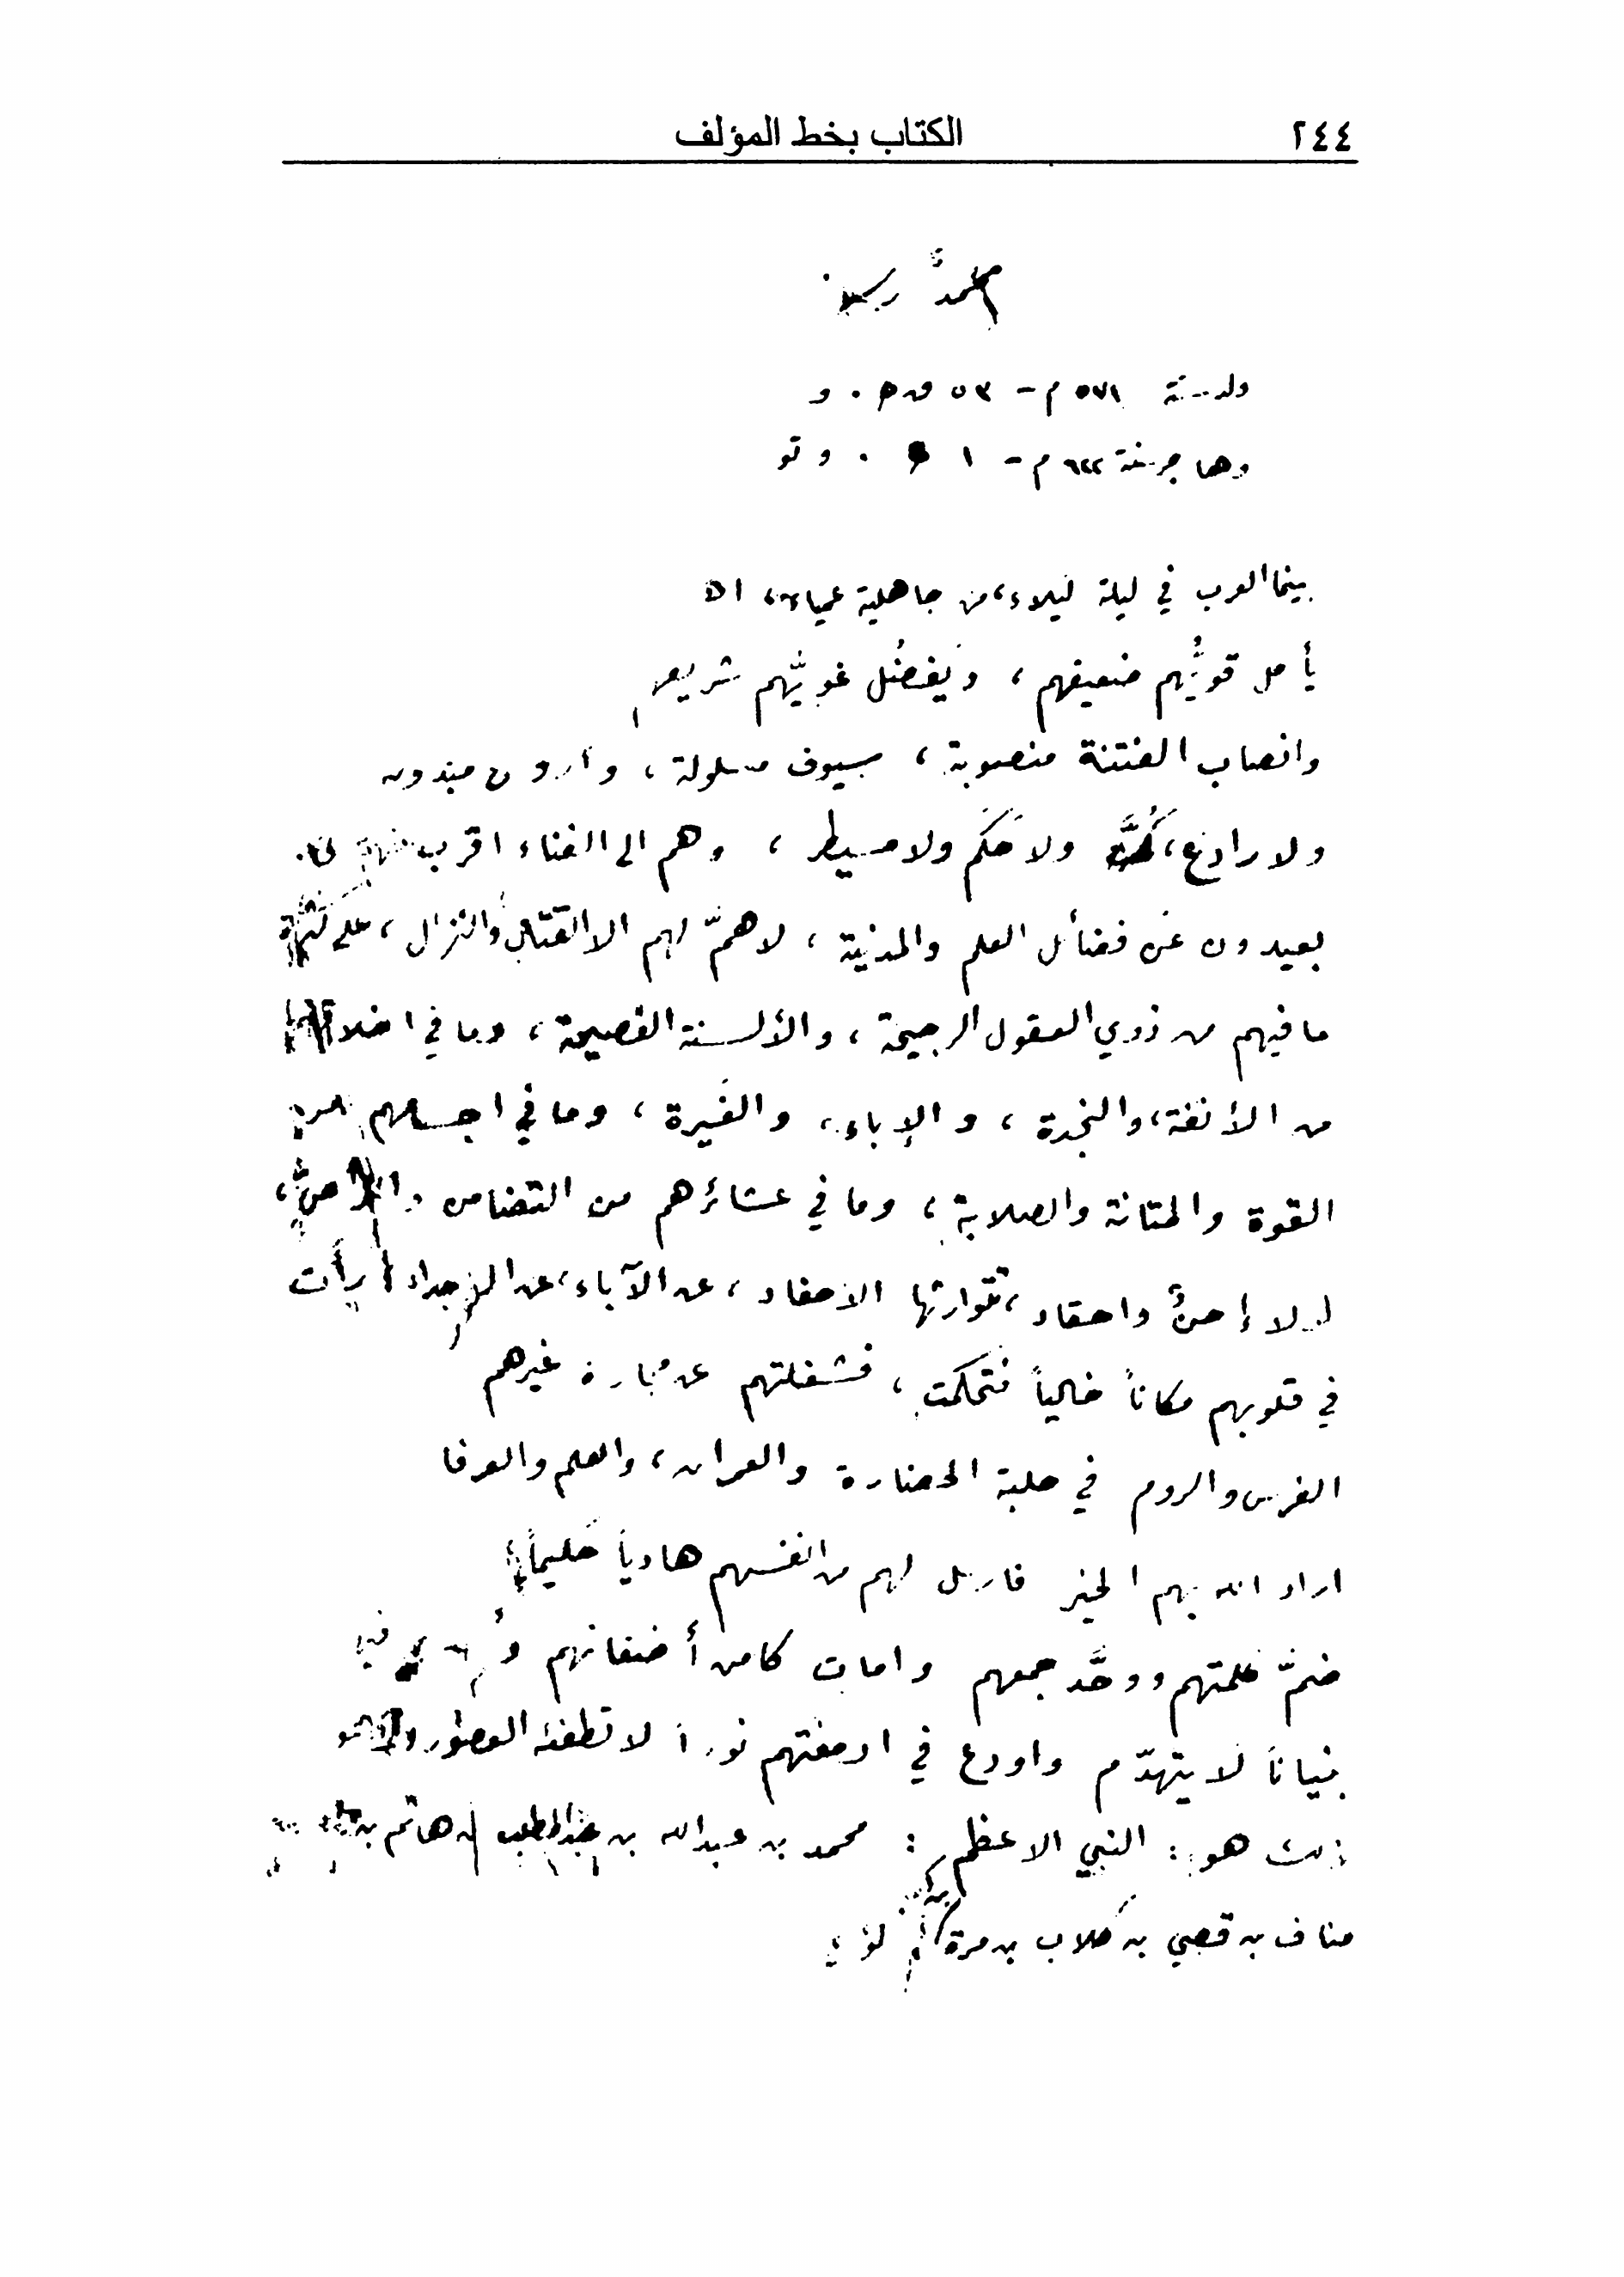 ٢٤٤ الكتاب بخط المؤلف
محمدٌ
ولد سنة ٥٧١ م - ٥٣ ق ھ . و
وهاجر سنة ٦٢٢ م - ١ . و تو
بينما العرب في ليلة ليلاء، من جاهلية عمياء،
يأكل قويُّهم ضعيفهم ، ويفضُل غويُّهم
وانصاب الفتنة منصوبة ، بسيوف مسلولة ،
ولا رادع، ولا حَكَم ولا مسيطر ، وهم الى الفناء اقرب
بعيدون عن فضائل العلم والمدنية ، لا همّ لهم الا القتال والنزال ، على كثرة
ما فيهم من ذوي العقول الرجيحة ، والألسنة الفصيحة ، وما في
من الأنفة، والنجدة ، والإباء، والغَيرة ، وما في اجسامهم من
القوة والمتانة والصلابة ، وما في عشائرهم من التضامن
لولا إحنٌ واحقاد ، تتوارثها الاحفاد ، عن الآباء، عن الاجداد رأت
في قلوبهم مكاناً خالياً فتحكمت ، فشغلتهم عن مباراة غيرهم
الفرس والروم في حلبة الحضارة والعمران ، والعلم والعرفا
اراد الله بهم الخير فارسل لهم من انفسهم هادياً حكيماً
ضمّ كلمتهم ووحَّد جمعهم وامات كامن أضغانهم
بنياناً لا يتهدّم واودع في ادمغتهم نوراً لا تطفئه العصور
ذلك هو : النبي الاعظم : محمد بن عبدالله بن عبدالمطلب بن هاشم بن
مناف بن قصي بن كلاب بن مرة لؤي